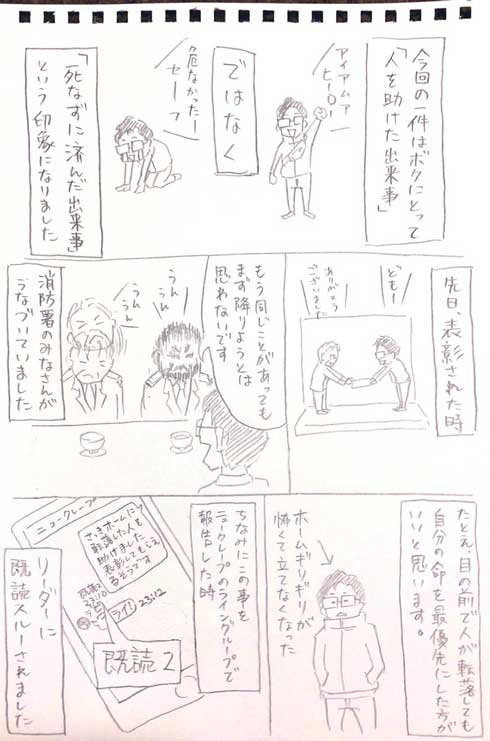 今回の一件はボクにとって
「人を助けた出来事」
アイアムア
ヒーロー
ではなく
危なかったー
セーフ
「死なずに済んだ出来事」
という印象になりました
先日、表彰された時
どもー
ありがとう
ございました
もう同じことがあっても
まず降りようとは
思わないです
うん
うん
うん
うん
消防署のみなさんが
うなづいていました
たとえ、目の前で人が転落しても
自分の命を最優先にした方が
いいと思います。
ホームギリギリが
怖くて立てなくなった
ちなみにこの事を
ニュークレープのライングループで
報告した時
ニュークレープ
さっきホームに
転落した人を
助けました
表彰してもらえ
るそうです
既読2
23:10
ライ!
23:12
既読2
リーダーに
既読スルーされました